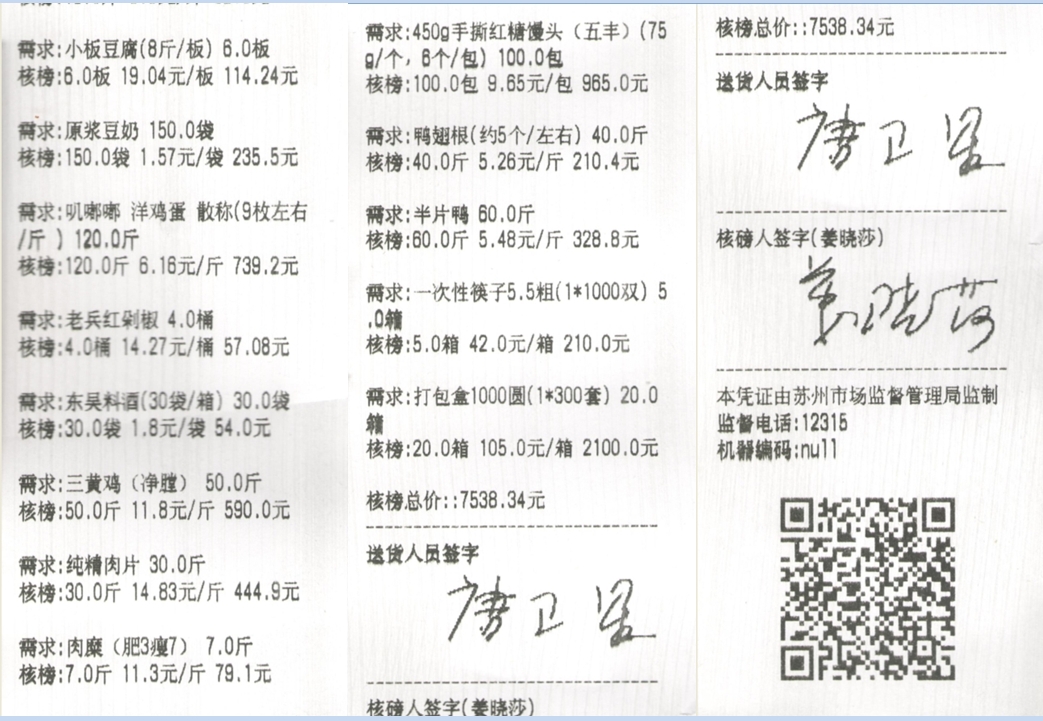 需求:小板豆腐(8斤/板) 6.0板
核榜:6.0板 19.04元/板 114.24元
需求:原浆豆奶 150.0袋
核榜:150.0袋 1.57元/袋 235.5元
需求:叽嘟嘟 洋鸡蛋 散称(9枚左右
/斤 ) 120.0斤
核榜:120.0斤 6.16元/斤 739.2元
需求:老兵红剁椒 4.0桶
核榜:4.0桶 14.27元/桶 57.08元
需求:东吴料酒(30袋/箱) 30.0袋
核榜:30.0袋 1.8元/袋 54.0元
需求:三黄鸡（净膛） 50.0斤
核榜:50.0斤 11.8元/斤 590.0元
需求:纯精肉片 30.0斤
核榜:30.0斤 14.83元/斤 444.9元
需求:肉糜（肥3瘦7） 7.0斤
核榜:7.0斤 11.3元/斤 79.1元
需求:450g手撕红糖馒头（五丰）(75
g/个，6个/包) 100.0包
核榜:100.0包 9.65元/包 965.0元
需求:鸭翅根(约5个/左右) 40.0斤
核榜:40.0斤 5.26元/斤 210.4元
需求:半片鸭 60.0斤
核榜:60.0斤 5.48元/斤 328.8元
需求:一次性筷子5.5粗(1*1000双) 5
.0箱
核榜:5.0箱 42.0元/箱 210.0元
需求:打包盒1000圆(1*300套) 20.0
箱
核榜:20.0箱 105.0元/箱 2100.0元
核榜总价::7538.34元
送货人员签字
唐卫星
核磅人签字(姜晓莎)
核榜总价::7538.34元
送货人员签字
唐卫星
核磅人签字(姜晓莎)
姜晓莎
本凭证由苏州市场监督管理局监制
监督电话:12315
机器编码:null